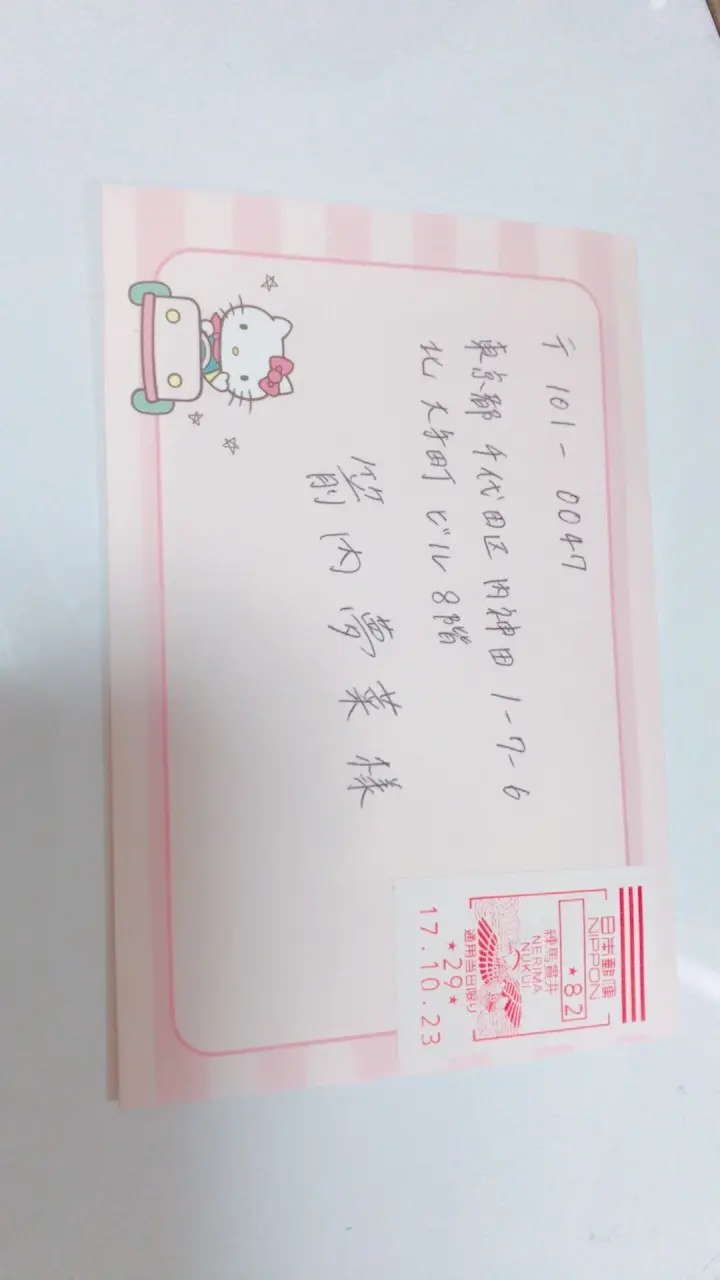 〒101-0047
東京都千代田区内神田1-7-6
北大手町ビル8階
箭内夢菜様
日本郵便
NIPPON
*82
練馬貫井
NERIMA
NUKUI
通用当日限り
*29*
17.10.23